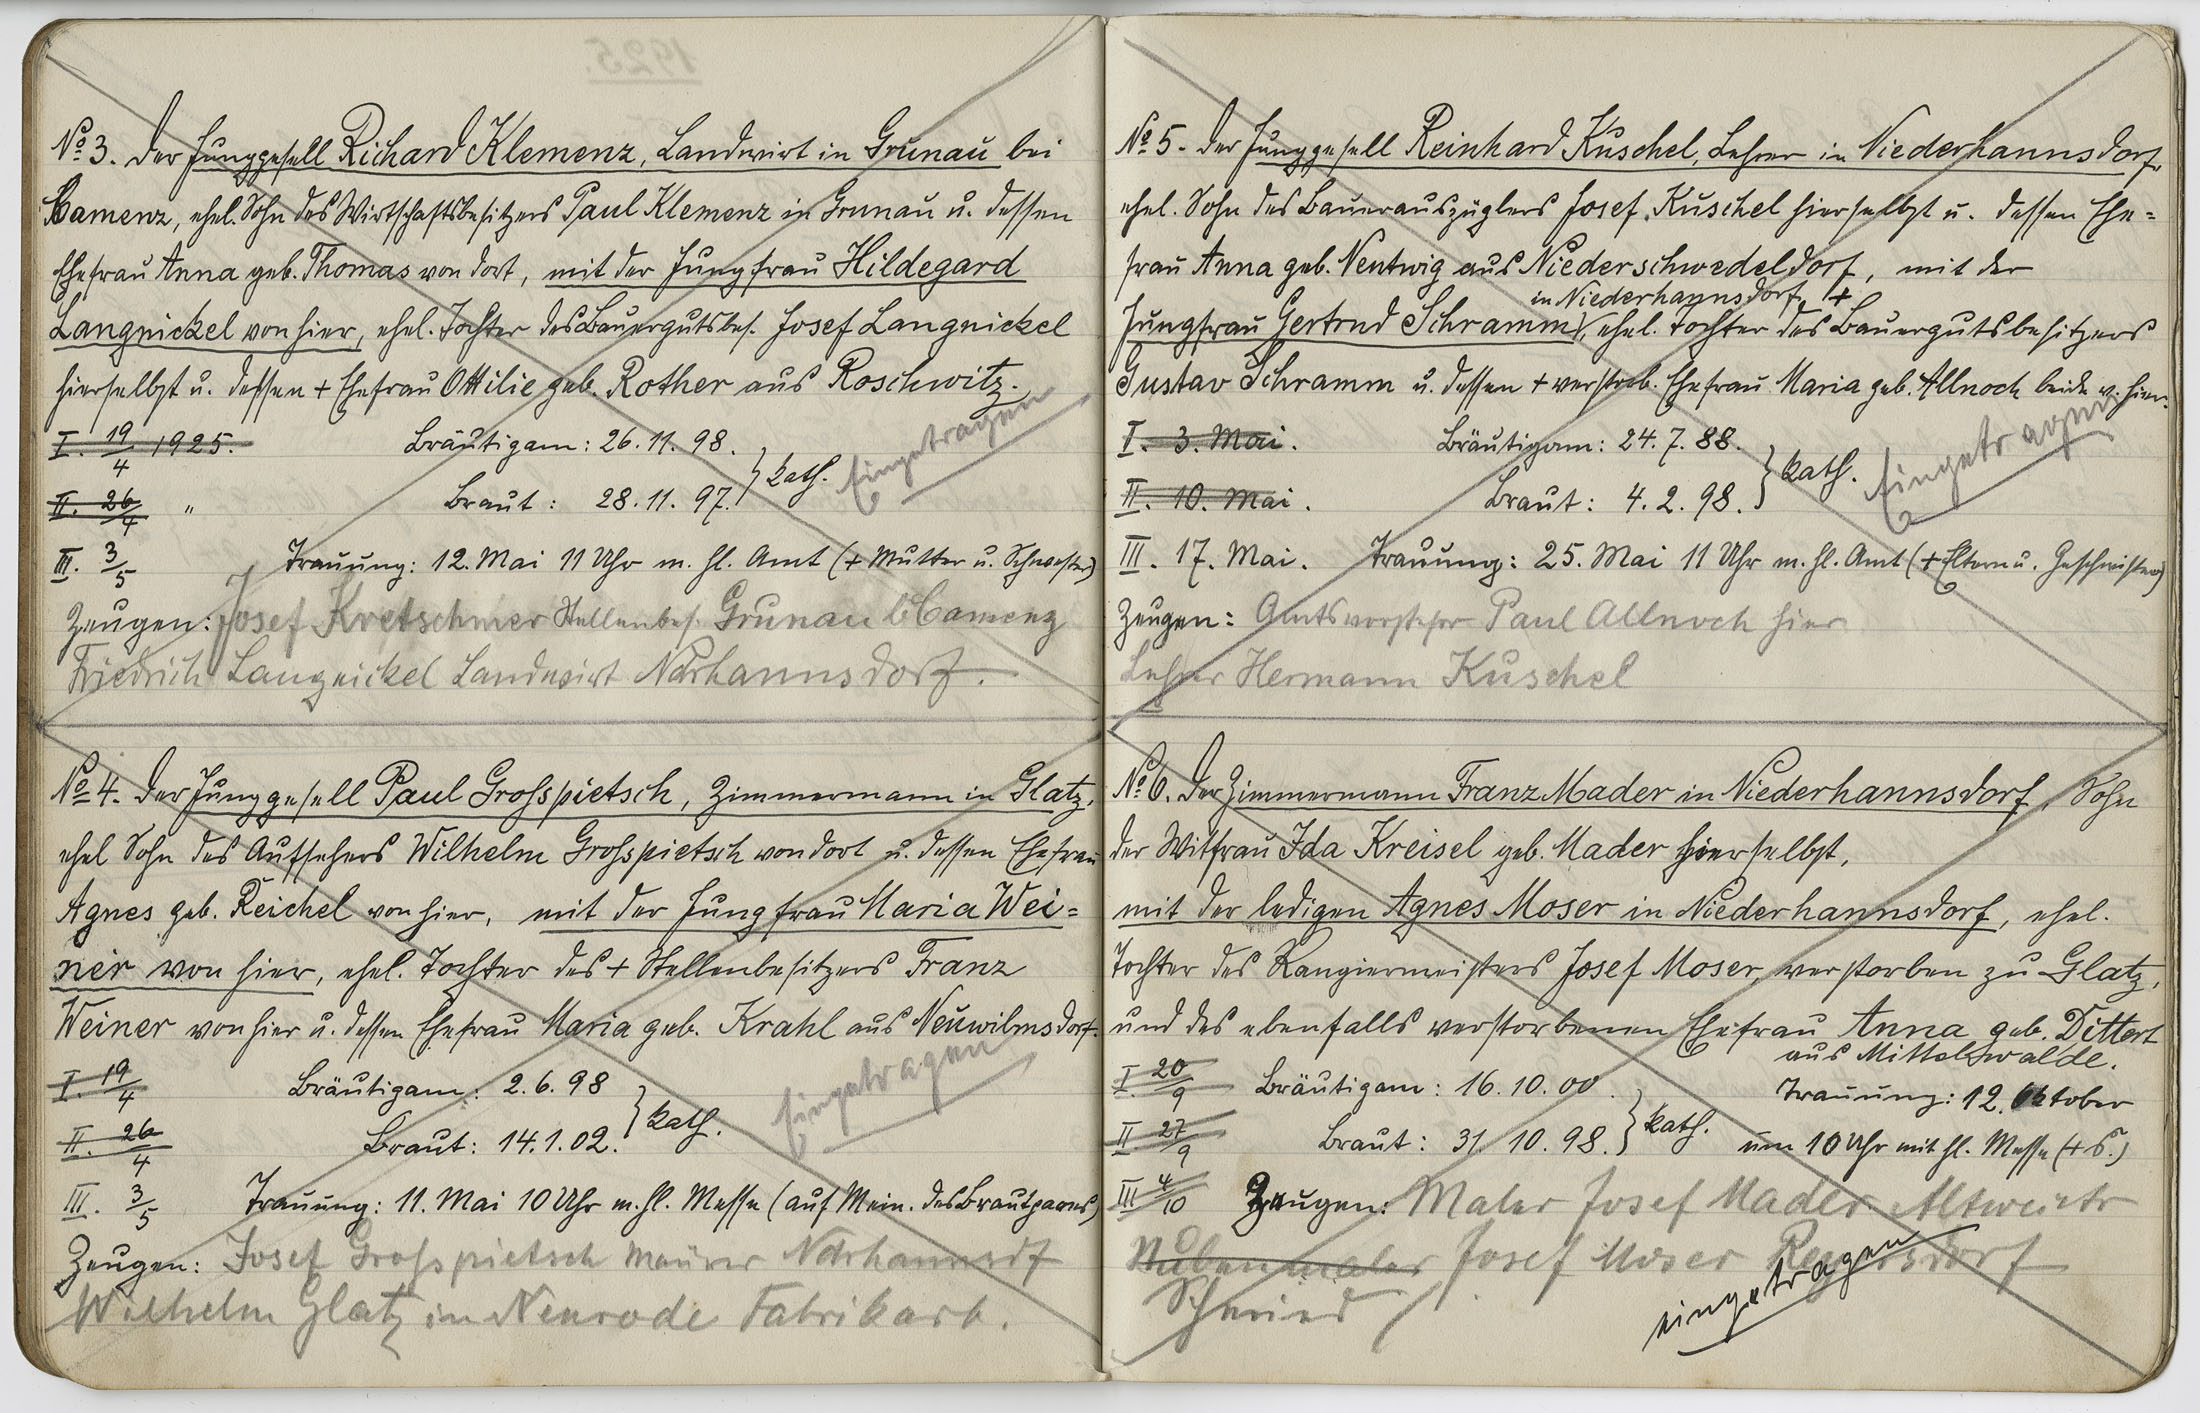 1925.
No 3. Der Junggesell Richard Klemenz, Landwirt in Grunau bei
Camenz, ehel. Sohn des Wirtschaftsbesitzers Paul Klemenz in Grunau u. dessen
Ehefrau Anna geb. Thomas von dort, mit der Jungfrau Hildegard
Langnickel von hier, ehel. Tochter des Bauergutsbes. Josef Langnickel
hierselbst u. dessen + Ehefrau Ottilie geb. Rother aus Roschwitz.
I. 19/4 1925. Bräutigam: 26.11.98.
II. 26/4 " Braut: 28.11.97. } kath. Eingetragen
III. 3/5 Trauung: 12. Mai 11 Uhr m. hl. Amt (+ Mutter u. Schwester)
Zeugen: Josef Kretschmer Stellenbes. Grunau b Camenz
Friedrich Langnickel Landwirt Ndrhannsdorf.
No 4. Der Junggesell Paul Grosspietsch, Zimmermann in Glatz,
ehel Sohn des Aufsehers Wilhelm Grosspietsch von dort u. dessen Ehefrau
Agnes geb. Reichel von hier, mit der Jungfrau Maria Wei=
ner von hier, ehel. Tochter des + Stellenbesitzers Franz
Weiner von hier u. dessen Ehefrau Maria geb. Krahl aus Neuwilmsdorf.
I. 19/4 Bräutigam: 2.6.98
II. 26/4 Braut: 14.1.02. } kath. Eingetragen
III. 3/5 Trauung: 11. Mai 10 Uhr m. hl. Messe (auf Mein. des Brautpaares)
Zeugen: Josef Grosspietsch Maurer Ndrhannsdf
Wilhelm Glatz in Neurode Fabrikarb.
No 5. Der Junggesell Reinhard Kuschel, Lehrer in Niederhannsdorf,
ehel. Sohn des Bauerauszüglers Josef Kuschel hierselbst u. dessen Ehe=
frau Anna geb. Nentwig aus Niederschwedeldorf, mit der
in Niederhannsdorf, +
Jungfrau Gertrud Schramm, ehel. Tochter des Bauergutsbesitzers
Gustav Schramm u. dessen + verstorb. Ehefrau Maria geb. Allnoch beide v. hier.
I. 3. Mai. Bräutigam: 24.7.88.
II. 10. Mai. Braut: 4.2.98. } kath. Eingetragen
III. 17. Mai. Trauung: 25. Mai 11 Uhr m. hl. Amt (+ Eltern u. Geschwister)
Zeugen: Amtsvorsteher Paul Allnoch hier
Lehrer Hermann Kuschel
No 6. Der Zimmermann Franz Mader in Niederhannsdorf, Sohn
der Witfrau Ida Kreisel geb. Mader hierselbst,
mit der ledigen Agnes Moser in Niederhannsdorf, ehel.
Tochter des Rangiermeisters Josef Moser, verstorben zu Glatz,
und des ebenfalls verstorbenen Ehefrau Anna geb. Dittert
aus Mittelwalde.
I. 20/9 Bräutigam: 16.10.00. Trauung: 12. Oktober
II 27/9 Braut: 31.10.98. } kath. um 10 Uhr mit hl. Messe (+ S.)
III 4/10 Zeugen: Maler Josef Mader Altweistr
Josef Moser Rengersdorf
Schmied
eingetragen